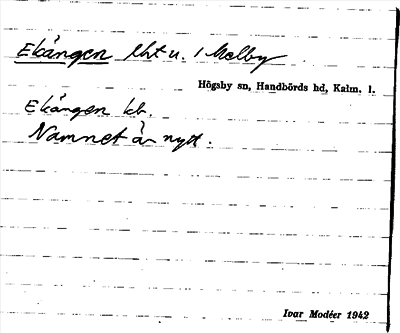 Ekängen lht u. 1 Melby
Högsby sn, Handbörds hd, Kalm. l.
Ekängen kb.
Namnet är nytt.
Ivar Modéer 1942